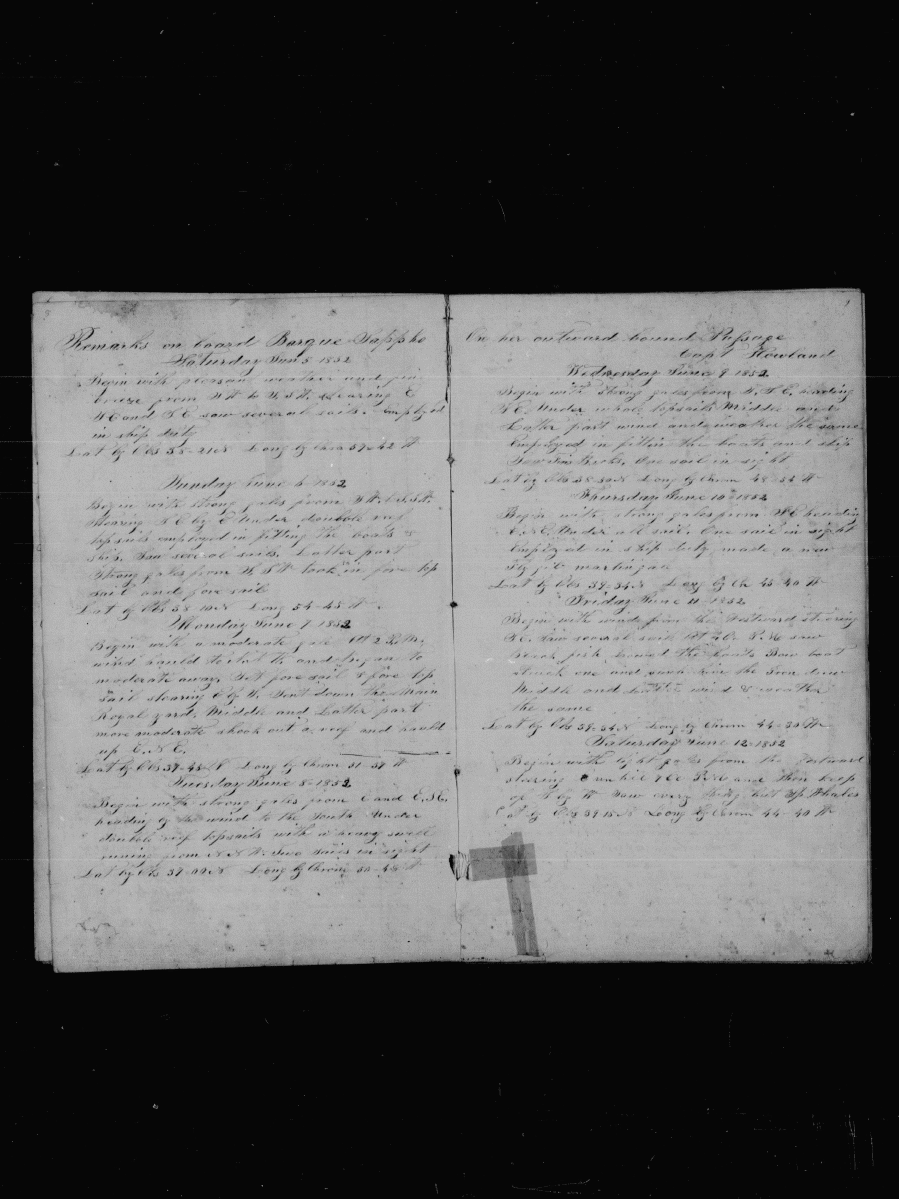 Remarks on board Barque Sappho
Saturday June 5 1852
Begin with pleasant weather and fin
breeze from to Stearing E
and S E saw several sails. Employed
in ship duty
Lat by Obs 38-21 N Long by Chro 57-42 W
Sunday June 6 1852
Begin with strong gales from
Stearing S E by E Under double reef
topsails employed in fitting the boats &
ship. Saw several sails. Latter part
Strong gales from took in fore top
sail and fore sail
Lat by Obs 38 10 N Long 54-45 W
Monday June 7 1852
Begin with a moderate gale At 2 P.M.
wind hauld to and began to
moderate away. Set fore sail & fore top
sail stearing Sent down the Main
Royal yard. Middle and Latter part
more moderate shook out a reef and hauld
up E. N E.
Lat by Obs 37-43 N Long by Chrom 51-57 W
Tuesday June 8-1852
Begin with strong gales from E and E.S.E.
heading of the wind to the South Under
double reef topsails with a heavy swell
runing from N N W. Two sails in sight
Lat by Obs 37-09 N Long by Chrom 50-45 W
On her outward bound Passage
Capt Howland
Wednesday June 9 1852.
Begin with strong gales from heading
S E. Under whole topsails Middle and
Latter part wind and weather the same
Employed in fitting the boats and ship
Saw One sail in sight
Lat by Obs 38 Long by Chrom 48-55 W
Thursday June 10 1852
Begin with strong gales from heading
Under all sail. One sail in sight
Employed in ship duty made a new
fly jib martingale
Lat by Obs 39-34 N Long by Ch 45-40 W
Friday June 11-1852
Begin with winds from the Westward stearing
S E. Saw several sail At P.M saw
black fish lowerd the boats Bow boat
struck one and the Iron drew
Middle and Latter wind & weather
the same
Lat by Obs 39-34 N Long by Chrom 44-30 W
Saturday June 12-1852
Begin with light gales from the Eastward
stearing until P.M and then kep
of S by W Saw every thing but Sp Whales
Lat by Obs 39 15 N Long by Chrom 44-40 W